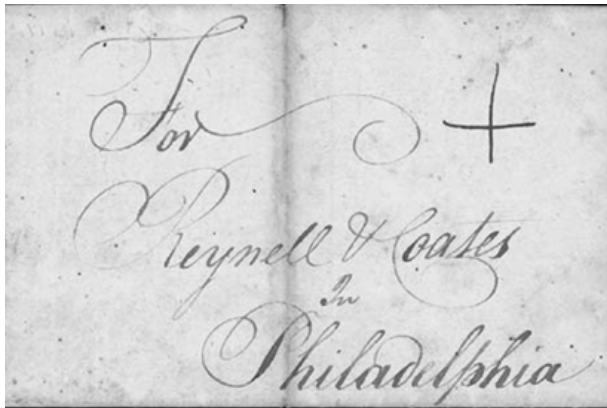 For +
Reynell & Coates
In
Philadelphia